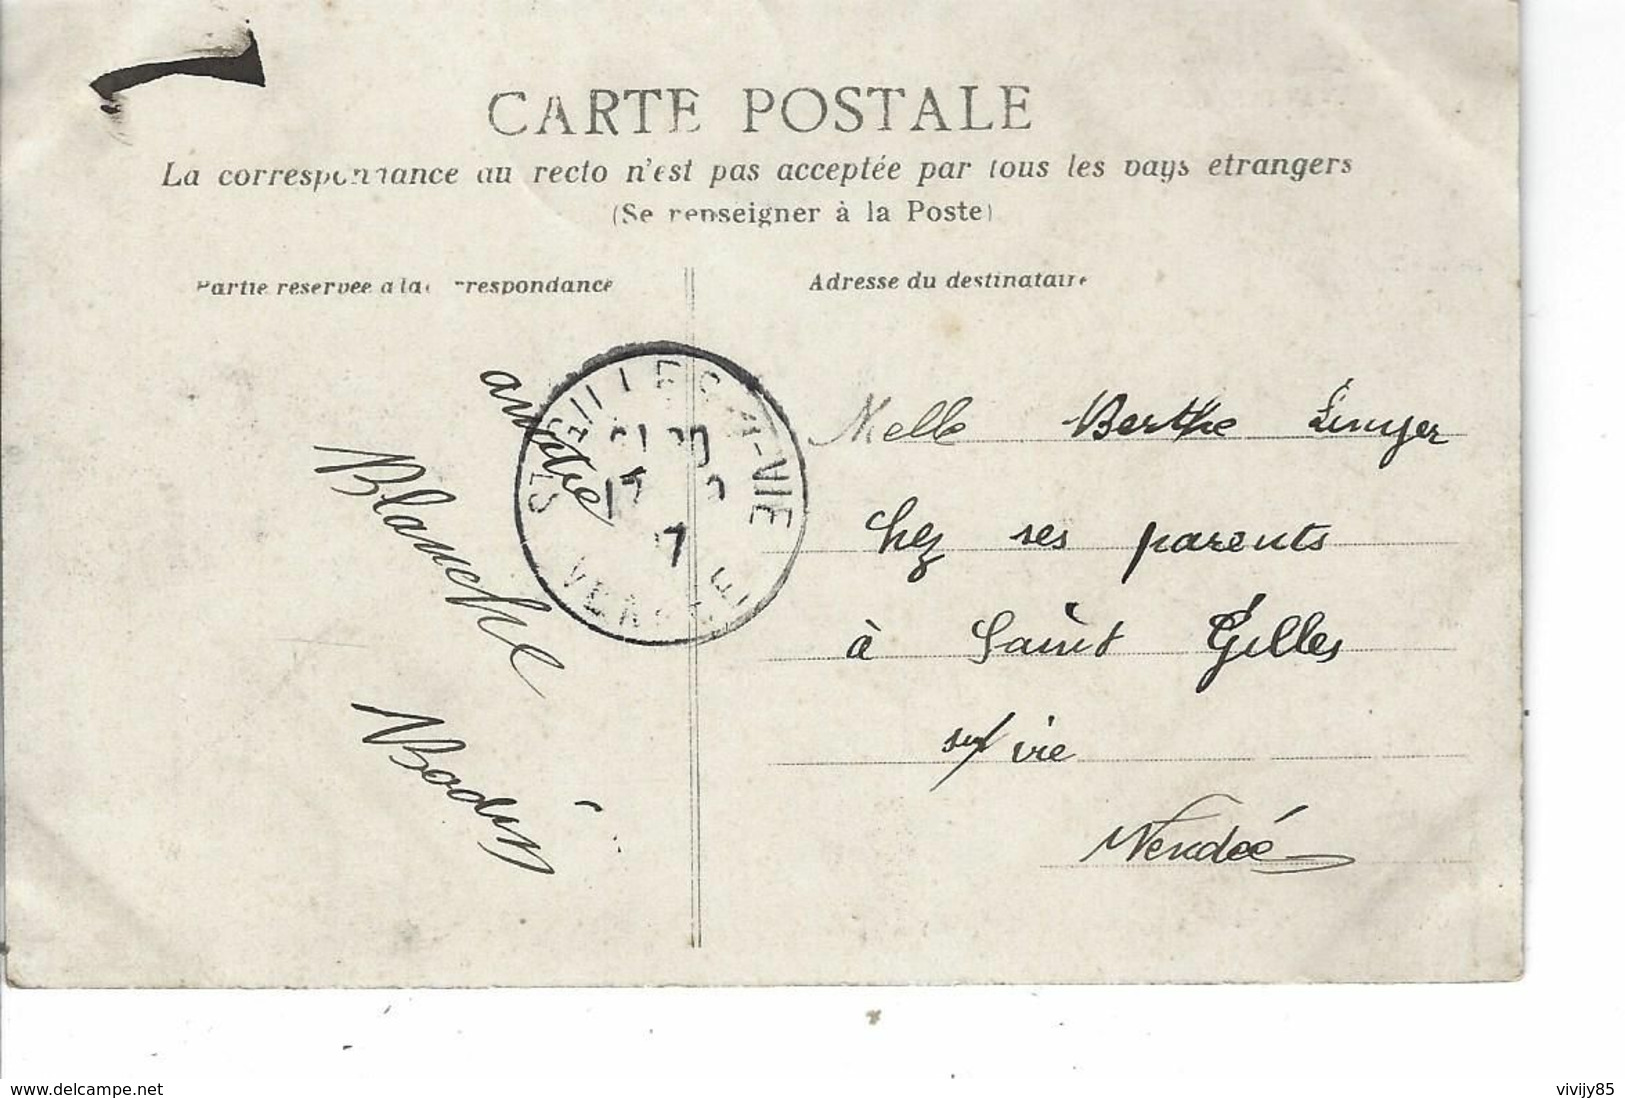 CARTE POSTALE
La correspondance au recto n'est pas acceptée par tous les pays etrangers
(Se renseigner à la Poste)
Partie reservee a la correspondance
Adresse du destinataire
amitié
Blanche
Bodin
ST GILLES-S-VIE
VENDEE
7
Melle Berthe
chez ses parents
à Saint Gilles
sur vie
Vendée
www.delcampe.net
vivijy85